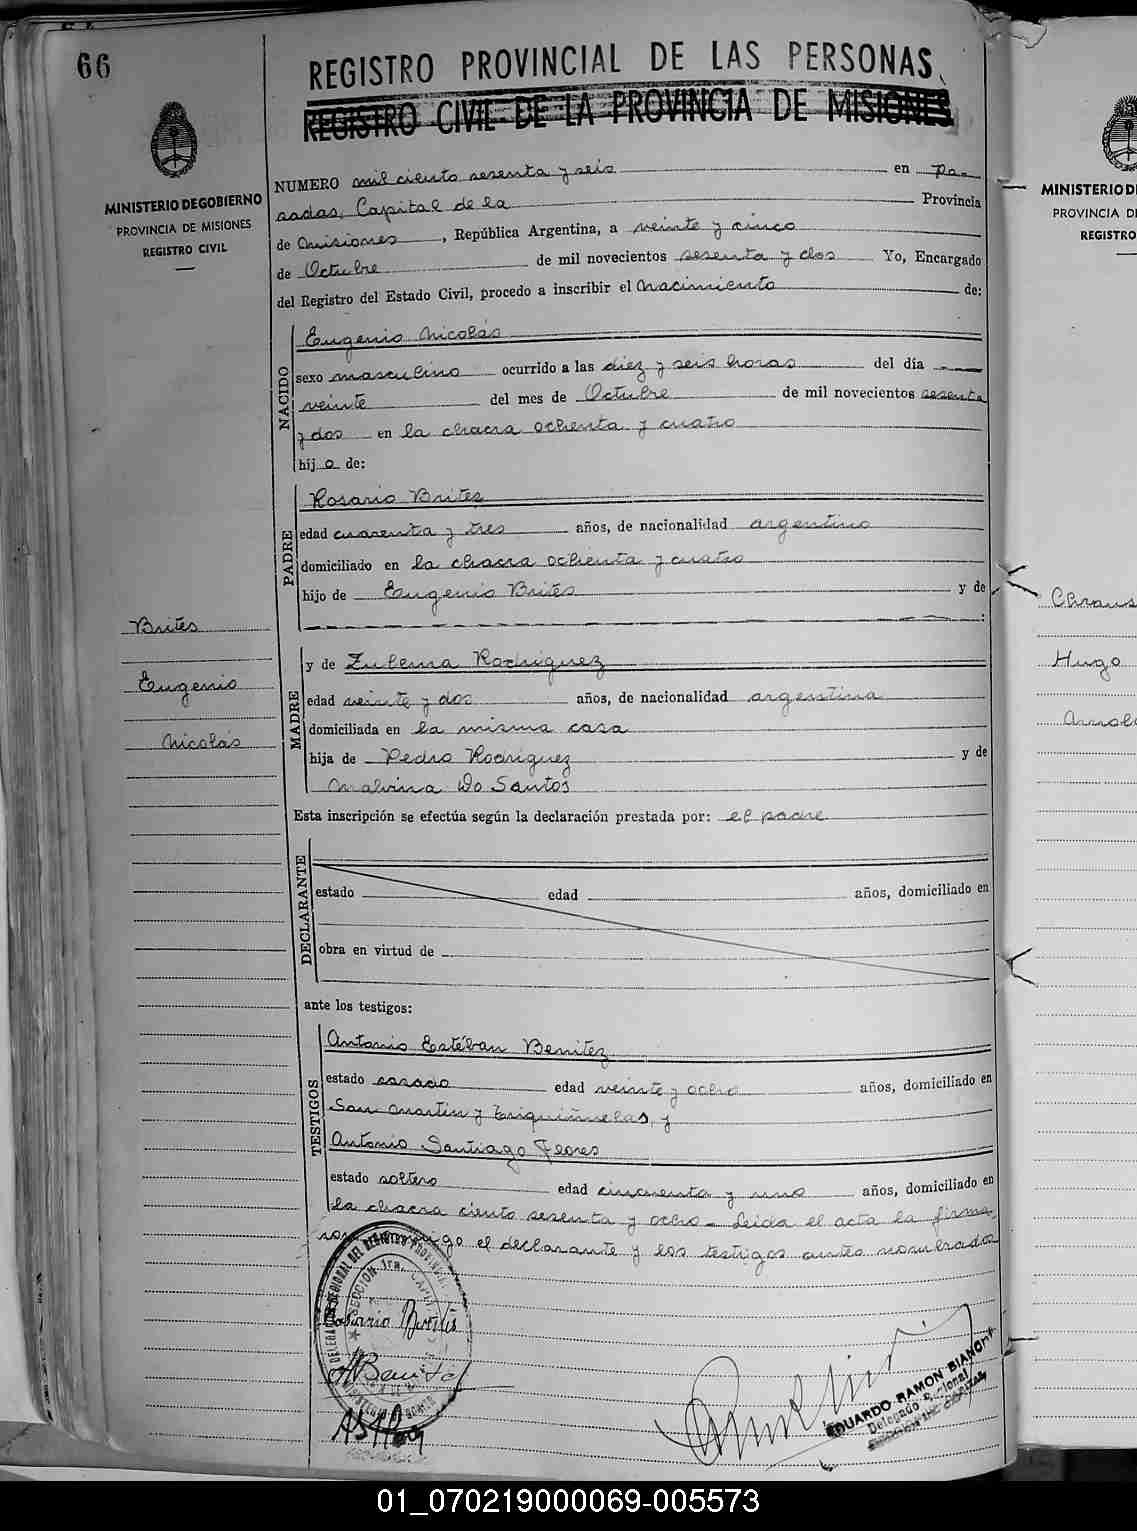 66
REGISTRO PROVINCIAL DE LAS PERSONAS
REGISTRO CIVIL DE LA PROVINCIA DE MISIONES
MINISTERIO DE GOBIERNO
PROVINCIA DE MISIONES
REGISTRO CIVIL
NUMERO mil ciento sesenta y seis en Po-
sadas, Capital de la Provincia
de Misiones, República Argentina, a veinte y cinco
de Octubre de mil novecientos sesenta y dos Yo, Encargado
del Registro del Estado Civil, procedo a inscribir el Nacimiento de:
NACIDO
Eugenio Nicolás
sexo masculino ocurrido a las diez y seis horas del día
veinte del mes de Octubre de mil novecientos sesenta
y dos en la chacra ochenta y cuatro
hijo de:
PADRE
Rosario Brites
edad cuarenta y tres años, de nacionalidad argentino
domiciliado en la chacra ochenta y cuatro
hijo de Eugenio Brites y de
:
Brites
Eugenio
Nicolás
MADRE
y de Zulema Rodriguez
edad veinte y dos años, de nacionalidad argentina
domiciliada en la misma casa
hija de Pedro Rodriguez y de
Malvina Do Santos
Esta inscripción se efectúa según la declaración prestada por: el padre
DECLARANTE
estado edad años, domiciliado en
obra en virtud de
ante los testigos:
TESTIGOS
Antonio Estéban Benitez
estado casado edad veinte y ocho años, domiciliado en
San Martin y Triquiñuelas, y
Antonio Santiago Flores
estado soltero edad cincuenta y uno años, domiciliado en
la chacra ciento sesenta y ocho. Leida el acta la firma-
ron conmigo el declarante y los testigos antes nombrados
DELEGACION REGIONAL DEL REGISTRO PROVINCIAL
SECCION 1ra. CAPITAL
Rosario Brites
ABenitez
EDUARDO RAMON BIANCHI
Delegado Regional
MINISTERIO D
PROVINCIA D
REGISTRO
Hugo
01_070219000069-005573